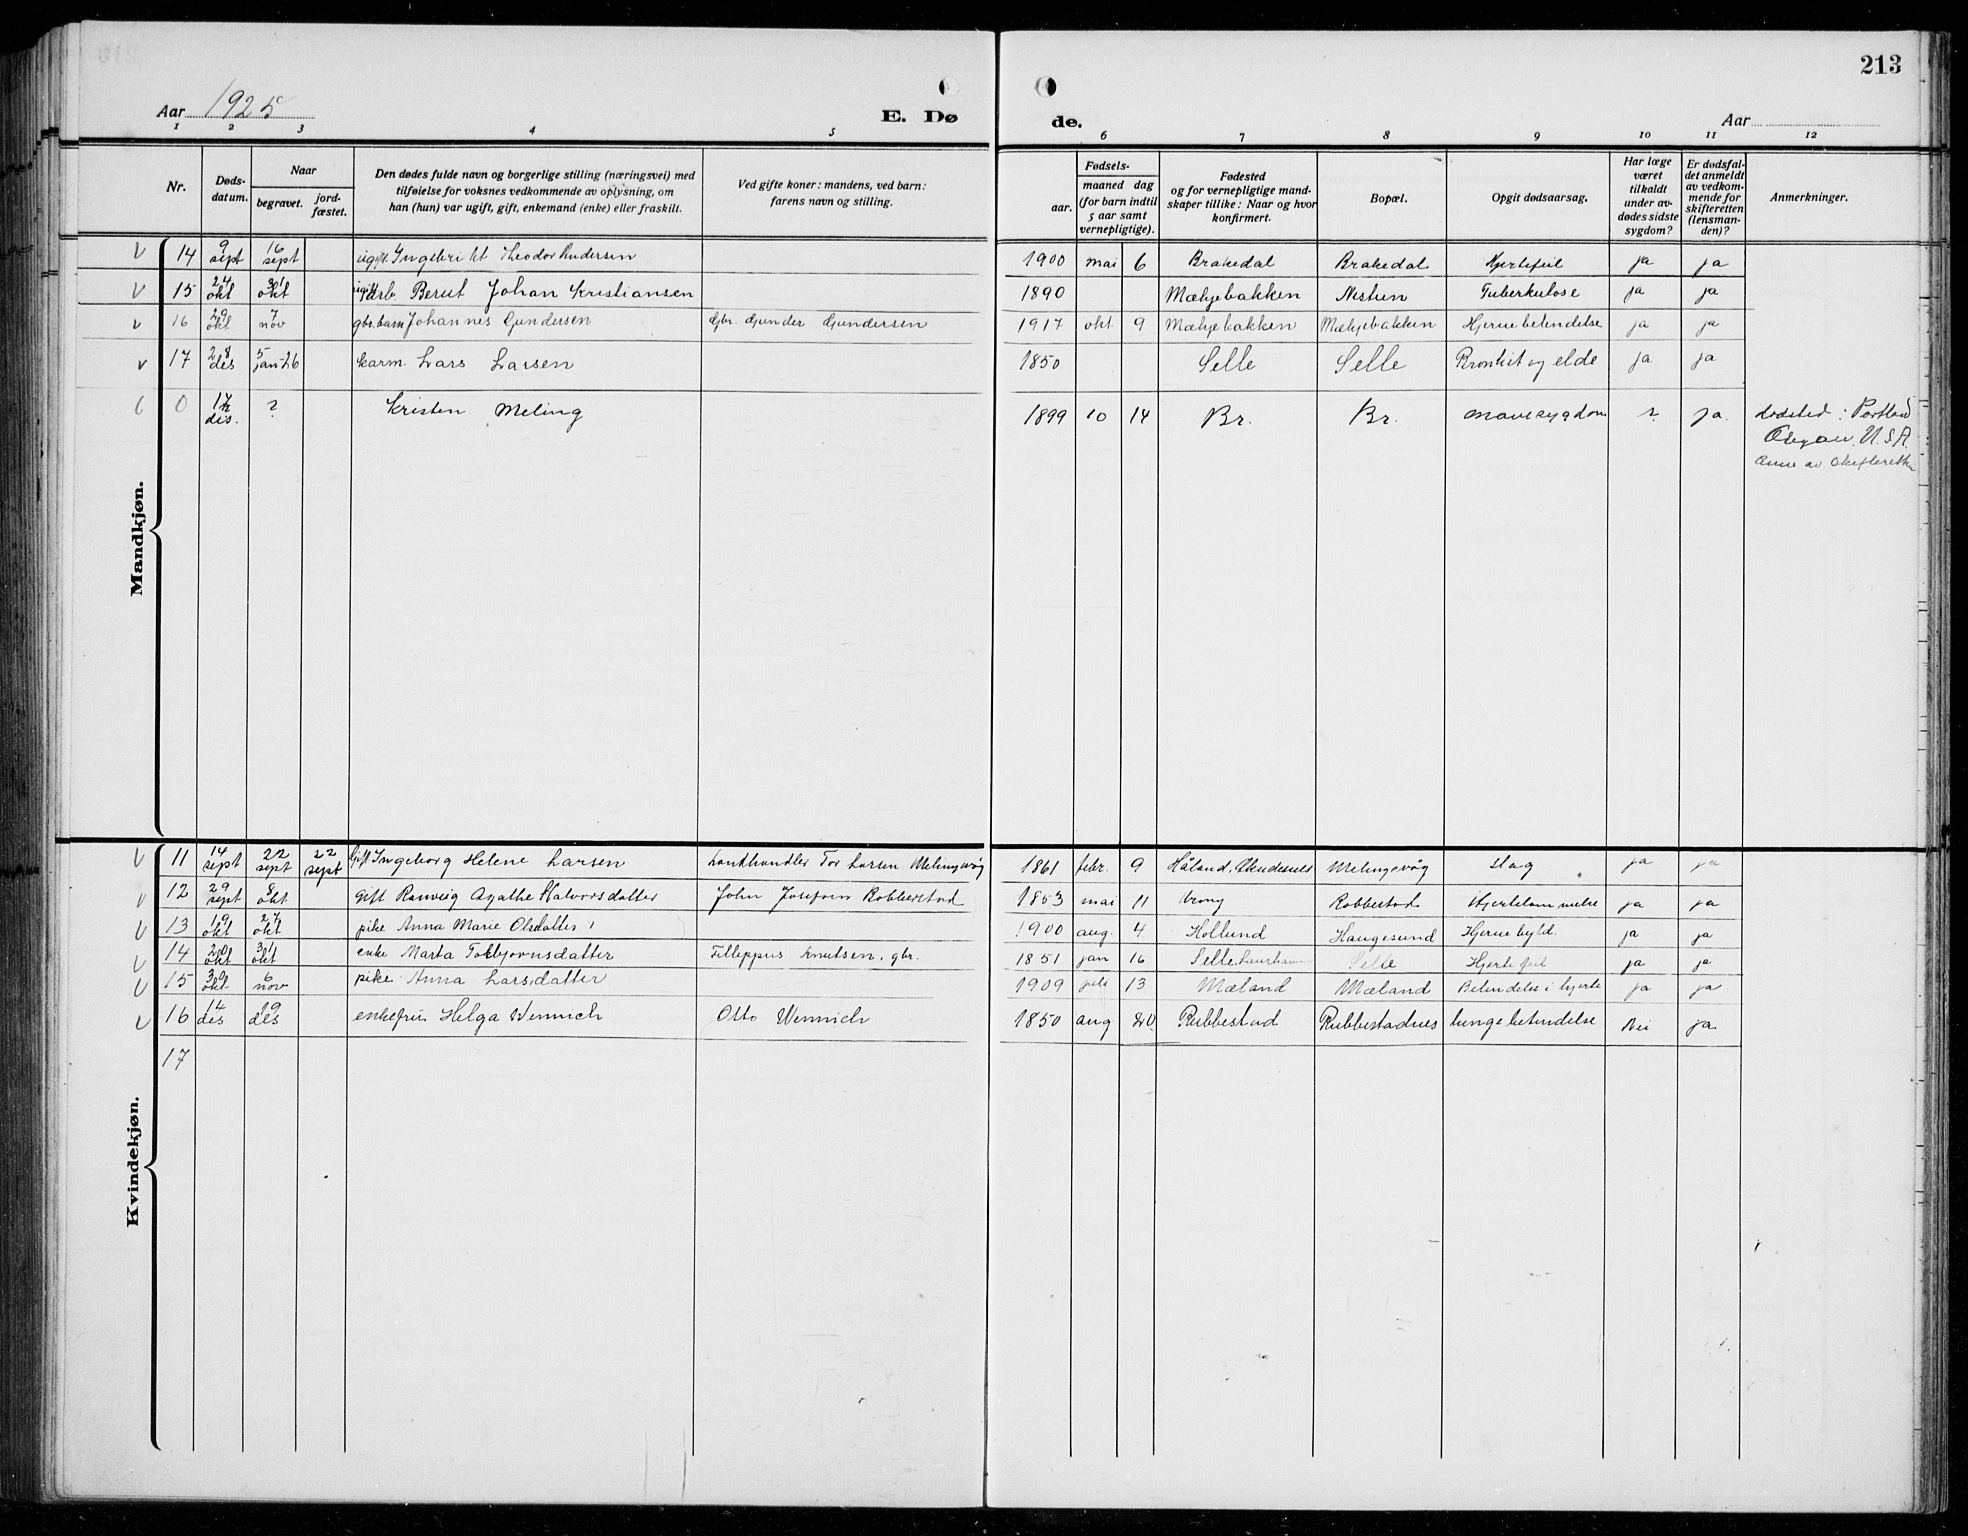 213
Aar 1925
E. Dø
de.
Aar
1 2 3 4 5 6 7 8 9 10 11 12
Nr.
Døds-
datum.
Naar
begravet.
jord-
fæstet.
Den dødes fulde navn og borgerlige stilling (næringsvei) med
tilføielse for voksnes vedkommende av oplysning, om
han (hun) var ugift, gift, enkemand (enke) eller fraskilt.
Ved gifte koner: mandens, ved barn:
farens navn og stilling.
Fødsels-
aar.
maaned dag
(for barn indtil
5 aar samt
vernepligtige).
Fødested
og for vernepligtige mand-
skaper tillike: Naar og hvor
konfirmert.
Bopæl.
Opgit dødsaarsag.
Har læge
været
tilkaldt
under av-
dødes sidste
sygdom?
Er dødsfal-
det anmeldt
av vedkom-
mende for
skifteretten
(lensman-
den)?
Anmerkninger.
Mandkjøn.
14 9 sept 16 sept ugift Ingebrikt Theodor Andersen 1900 mai 6 Brakedal Brakedal Hjertefeil ja ja
15 24 okt 31 okt Berut Johan Kristiansen 1890 Mækjebakken Nistun Tuberkulose ja ja
16 29 okt 7 nov gbr. barn Johannes Gundersen Gbr. Gunder Gundersen 1917 okt 9 Mækjebakken Mækjebakken Hjernebetendelse ja ja
17 28 des 5 jan-26 karm. Lars Larsen 1850 Selle Selle Bronkit og elde ja ja
0 des. ? Kristen Meling 1899 10 14 Br. Br. mavesygdom ? ja. dødsted: Portland
U.S.A.
av skifteretten
Kvindekjøn.
11 14 sept 22 sept 22 sept Gift Ingeborg Helene Larsen Landhandler Tor Larsen Melingsvåg 1861 febr. 9 Håland, Akudesnes Melingsvåg slag ja ja
12 29 sept 8 okt gift Ranveig Agathe Halvorsdatter John Josefsen Robberstad 1853 mai 11 Vrong Robbestad Hjertelammelse ja ja
13 19 okt 27 okt pike Anna Marie Olsdatter 1900 aug. 4 Hollund Haugesund Hjernebyld. ja ja
14 20 okt 31 okt enke Marta Torbjornsdatter Filleppus Knutsen, gbr. 1851 jan 16 Selle Selle Hjertefeil ja ja
15 30 okt 6 nov pike Anna Larsdatter 1909 juli 13 Mæland Mæland Betendelse i hjerte ja ja
16 14 des 19 des enkefru Helga Wennich Otto Wennich 1850 aug 20 Rubbestad Rubbestadnes lungebetendelse Nei ja
17